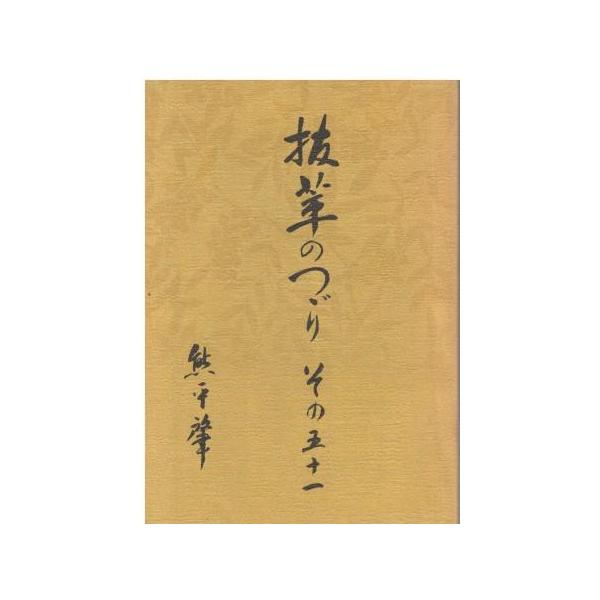 抜萃のつゞり その五十一
熊平肇